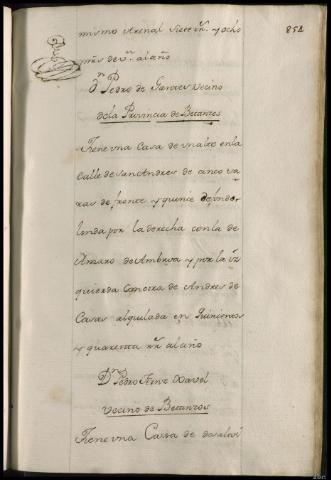 851
mismo Arenal Siete rs. y ocho
mrs de vn. al año
Dn Pedro de
Vecino
de la Provincia de Betanzos
Tiene vna Casa de vn alto en la
Calle de San Andres de cinco va
ras de frente y quince de fondo,
linda por la derecha con la de
Amaro de y por la iz
quierda con otra de Andres de
Casas alquilada en Quinientos
y quarenta rs al año
Dn Pedro
Vecino de Betanzos
Tiene vna Casa de dos altos